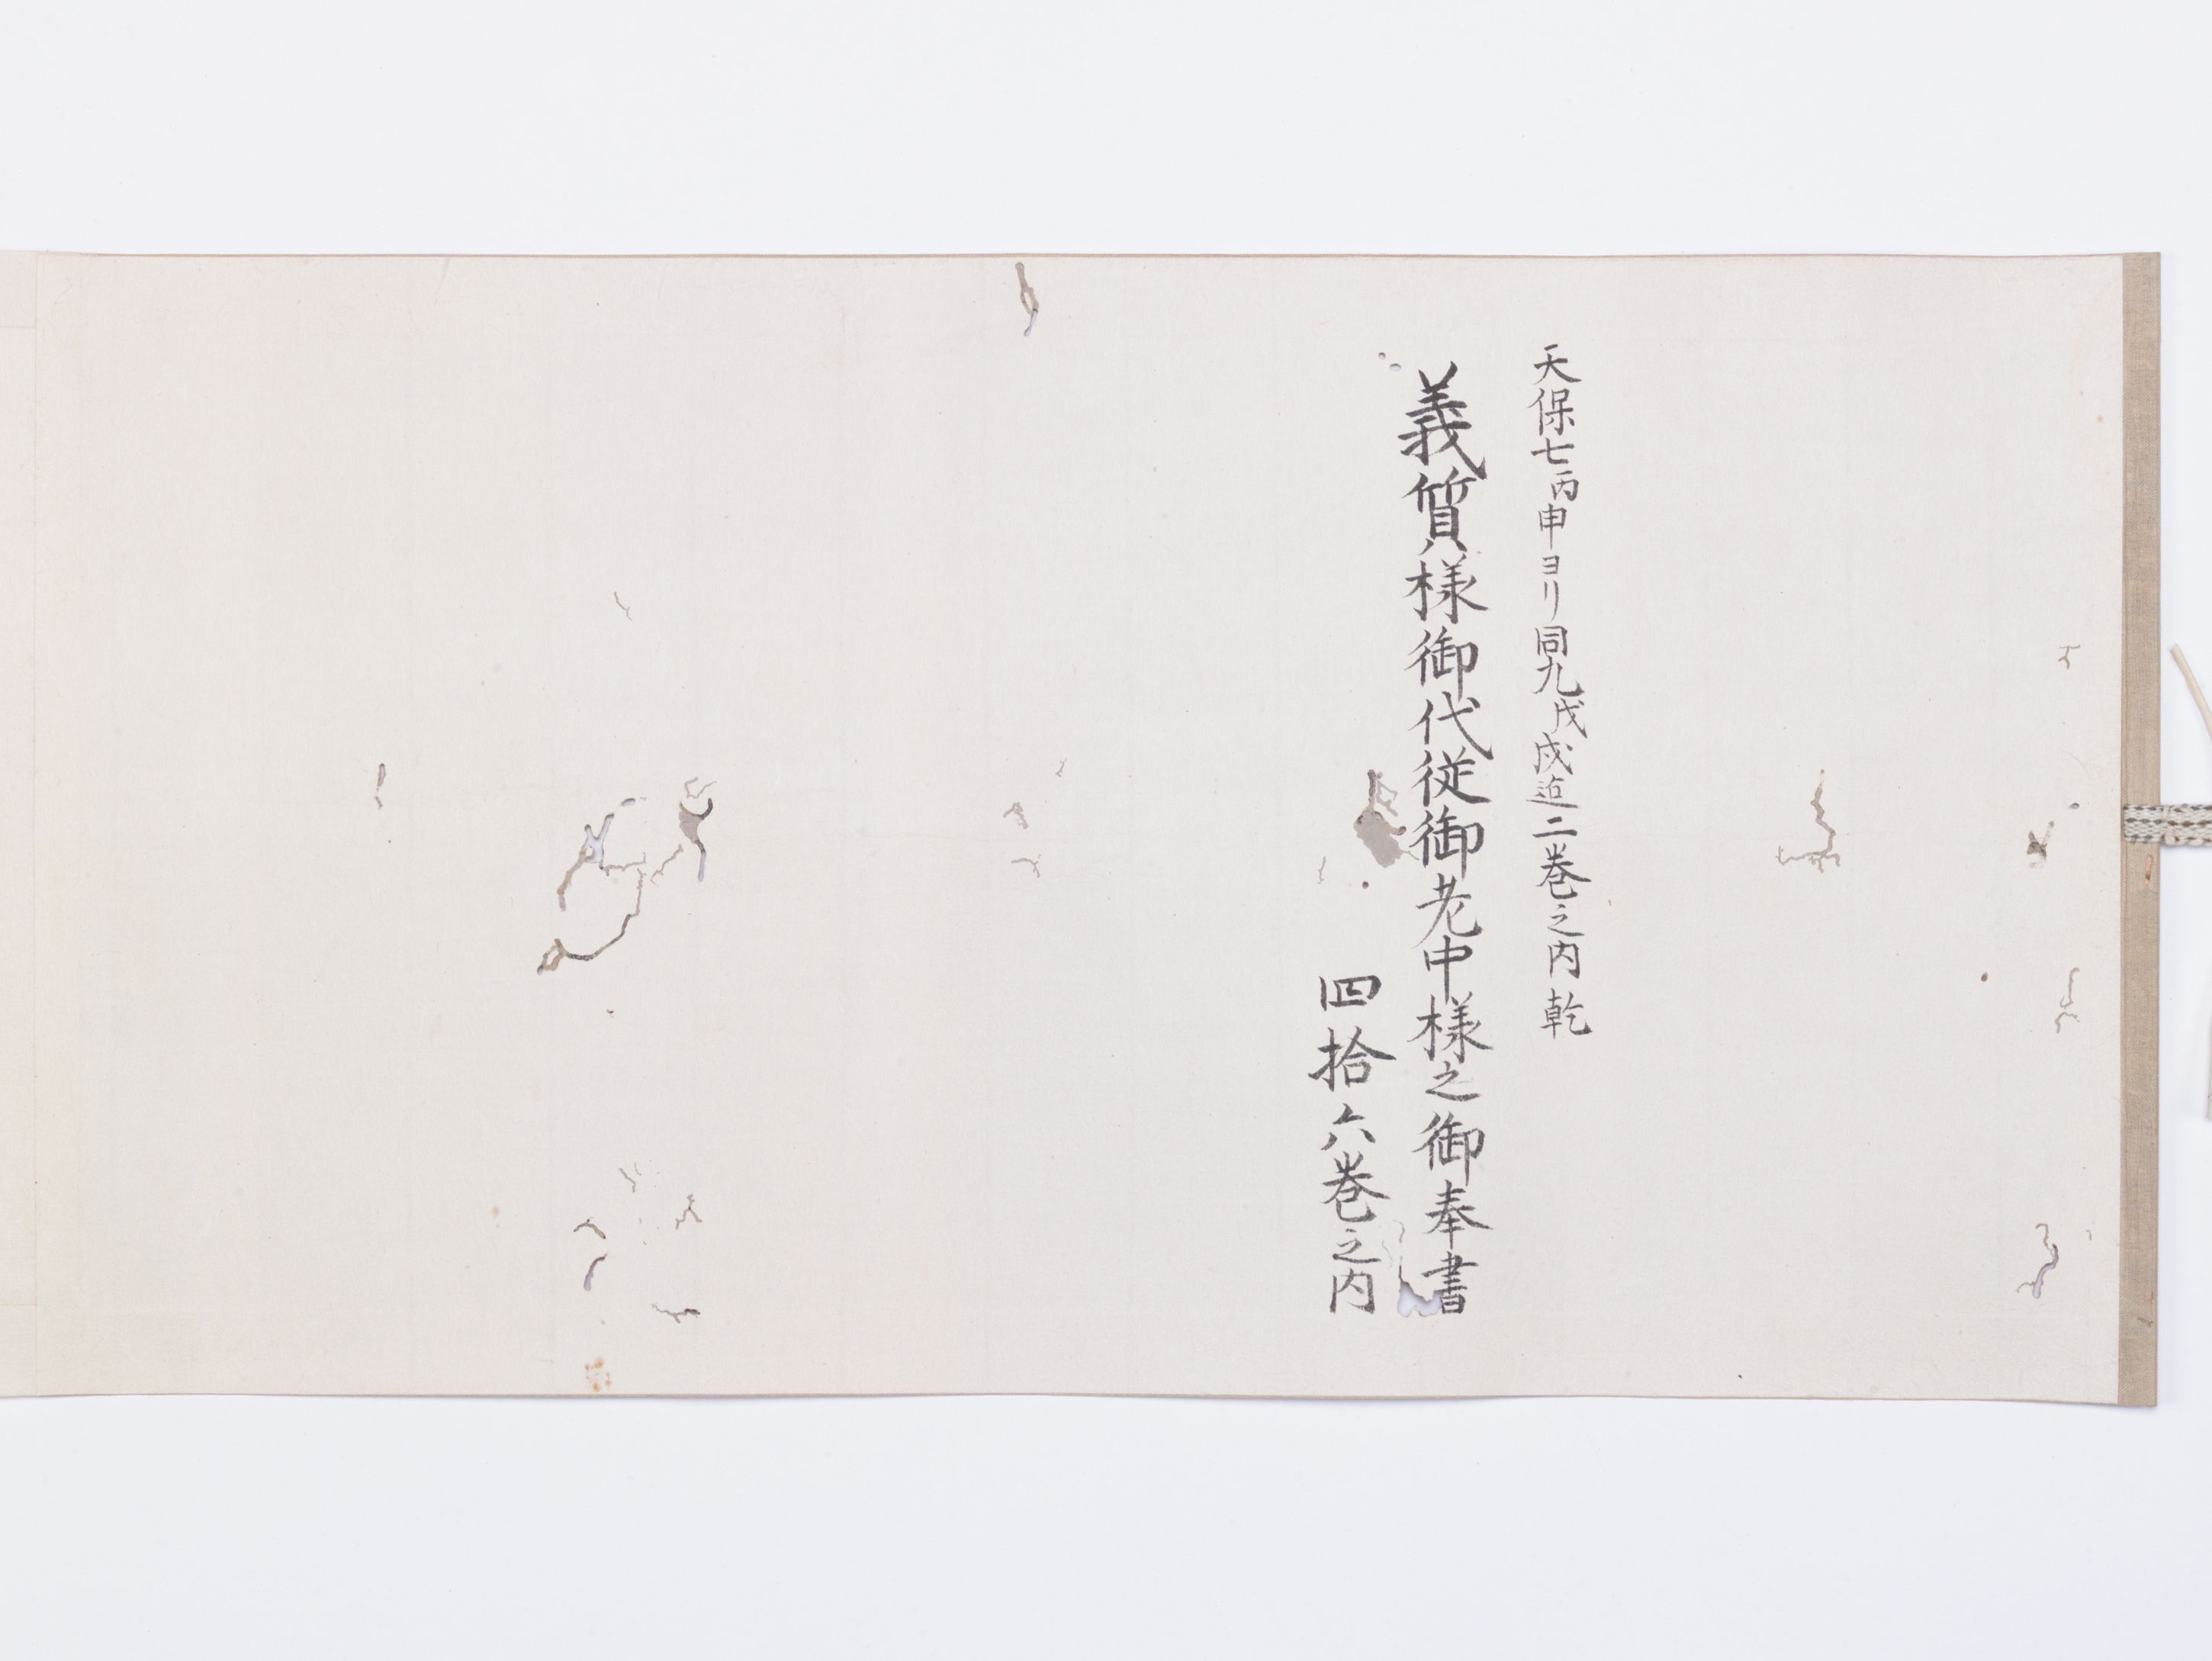 天保七丙申ヨリ同九戊戌迄二巻之内 乾
義質様御代従御老中様之御奉書
四拾六巻之内